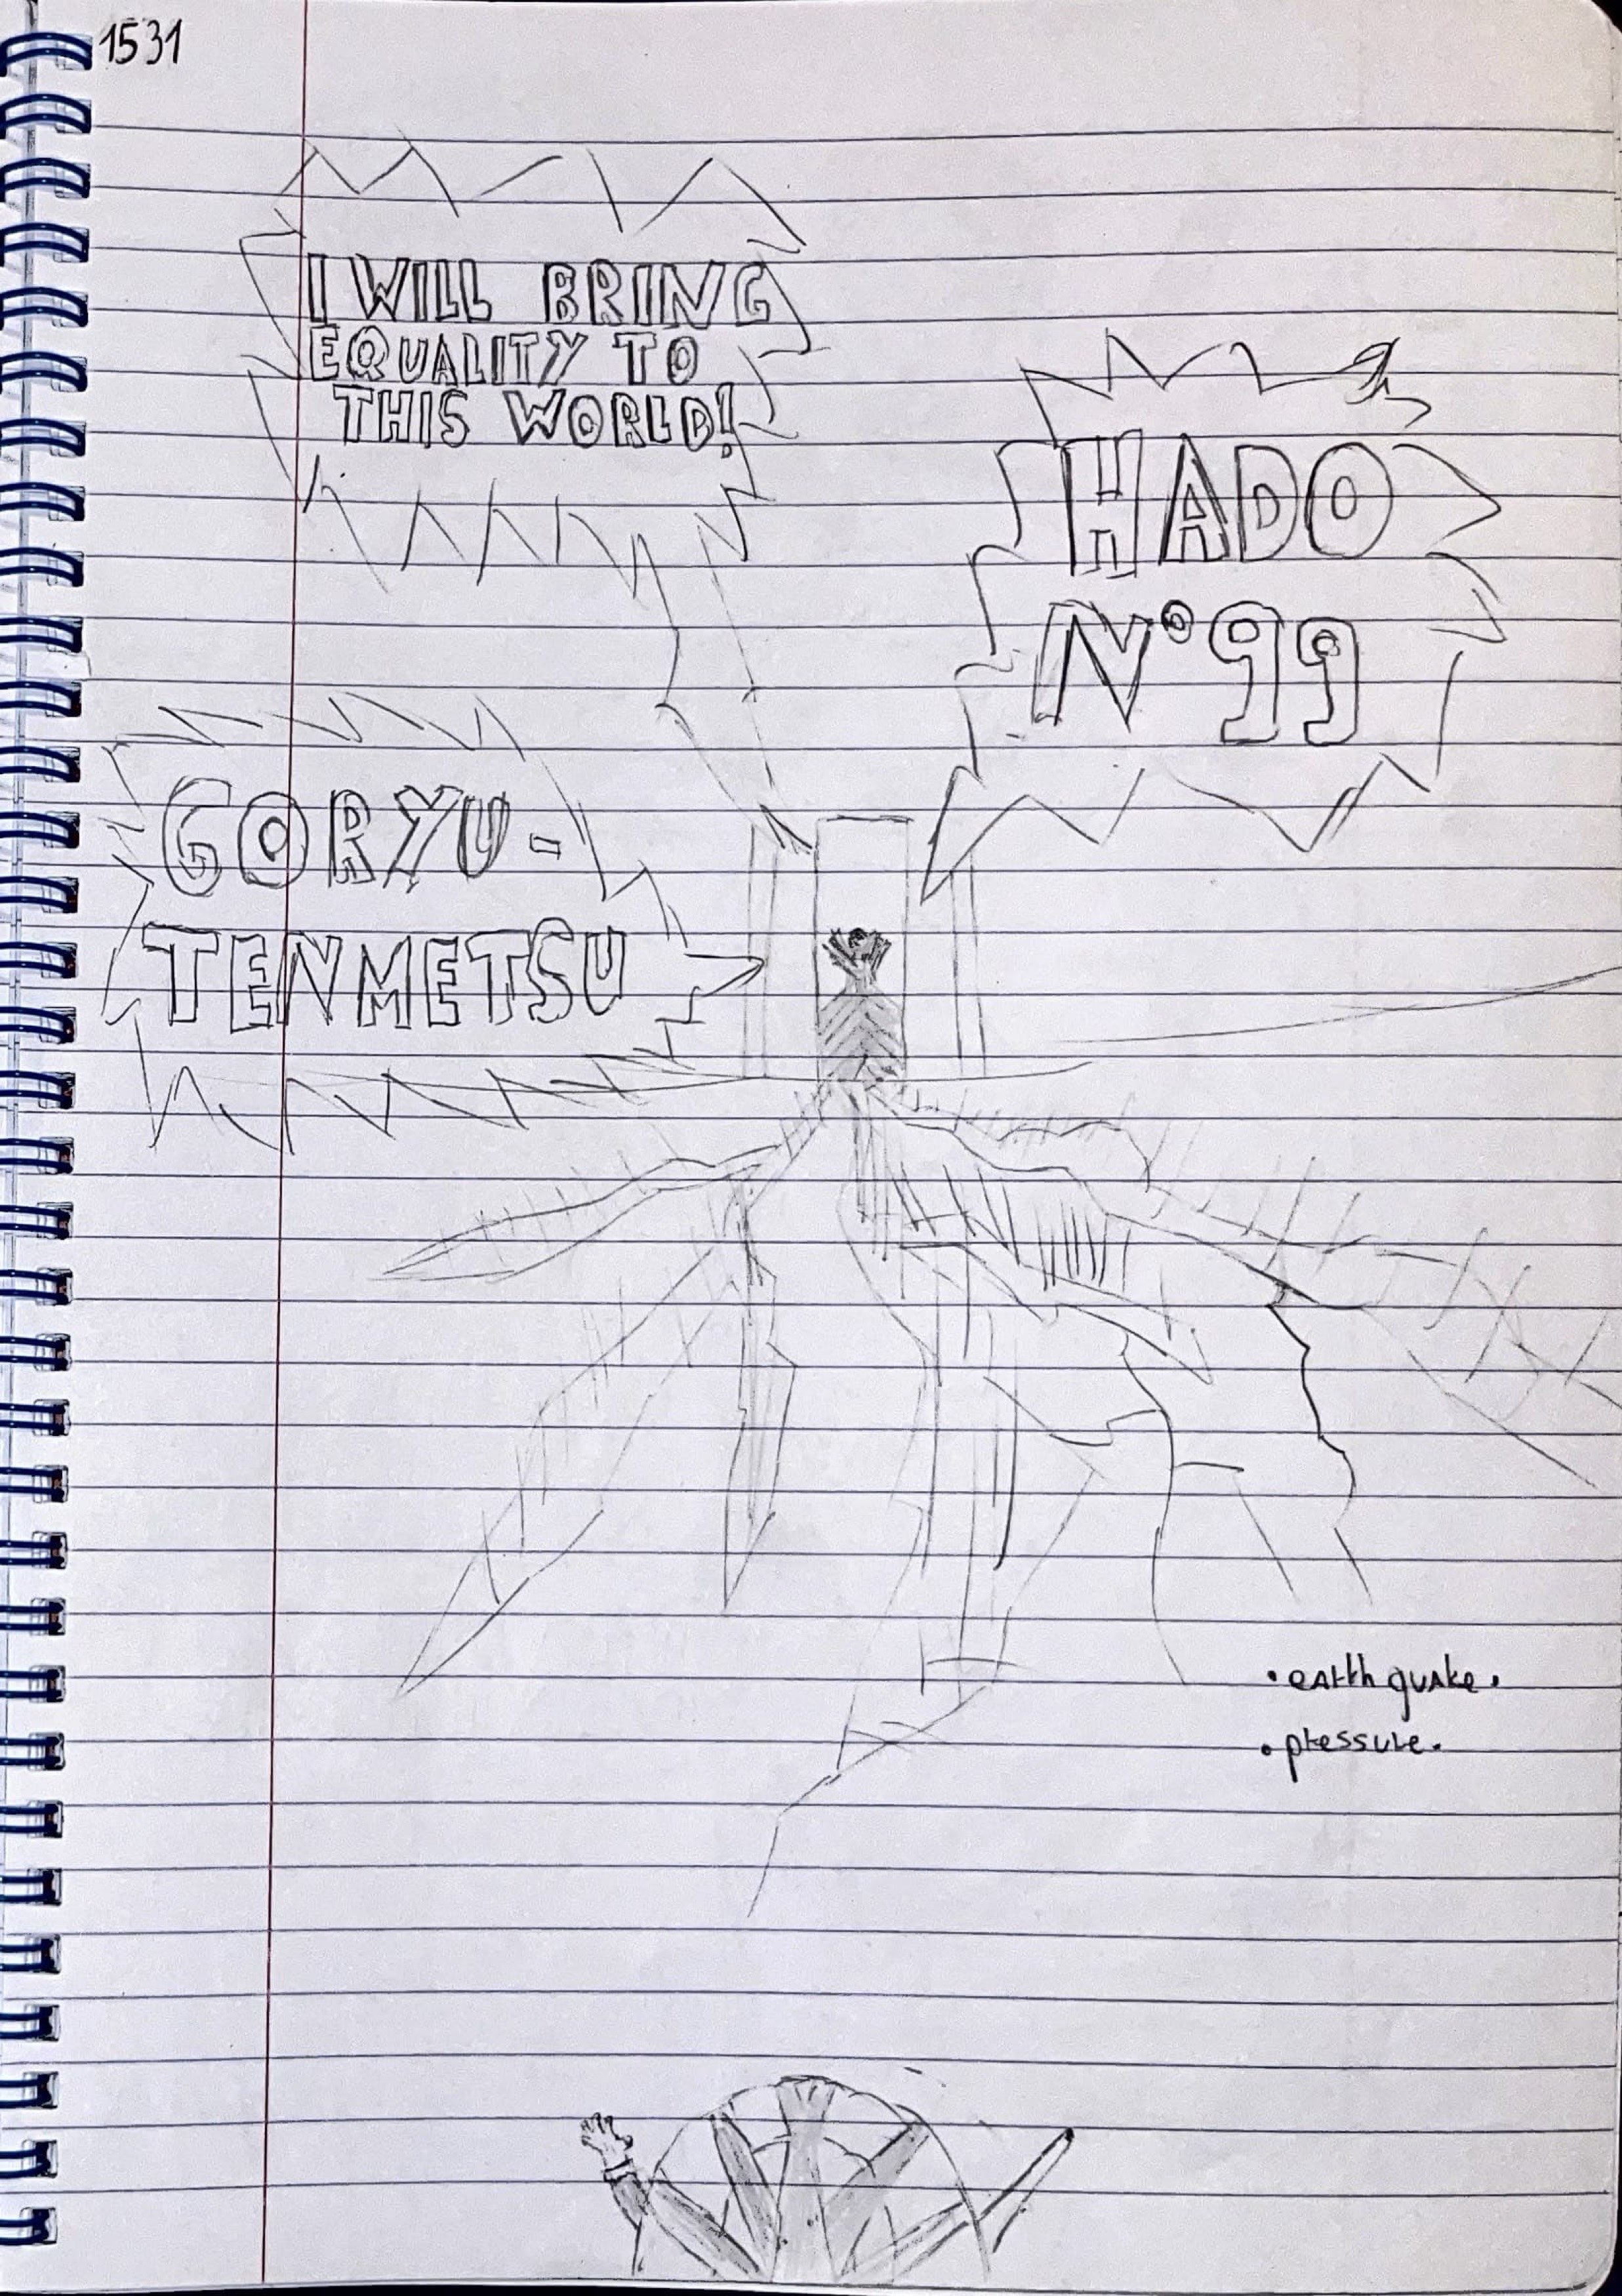 1531
I WILL BRING
EQUALITY TO
THIS WORLD!
HADO
N°99
GORYU-
TENMETSU
• earthquake.
• pressure.